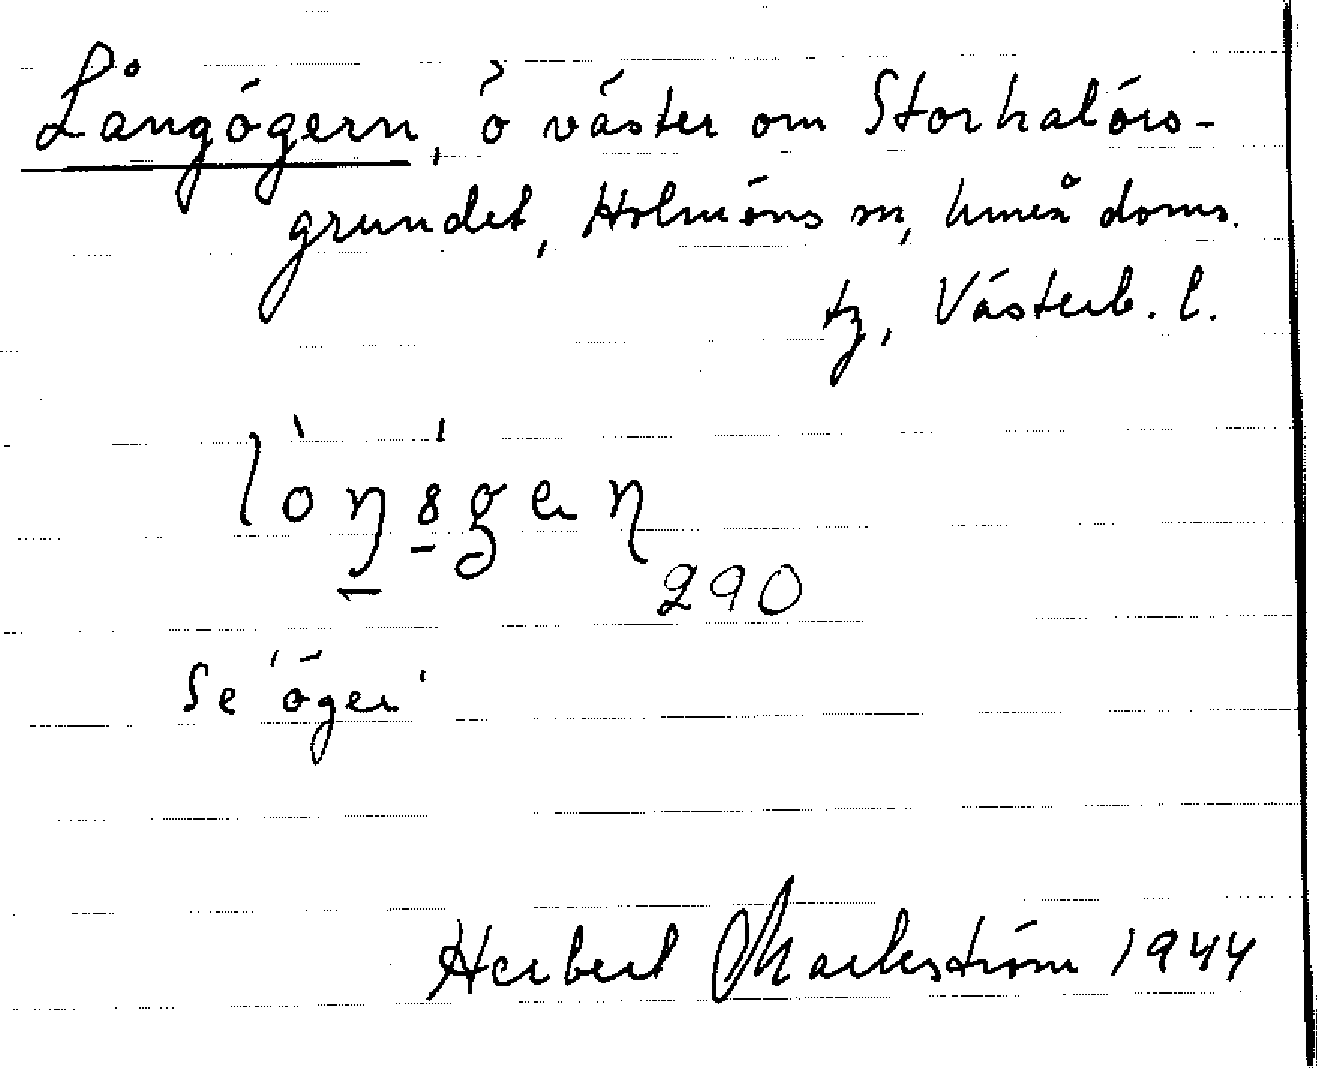 Långögern, ö väster om Storhalörs-
grundet, Holmöns sn, Umeå doms.
tg, Västerb. l.
290
Se 'öger'
Herbert Markström 1944